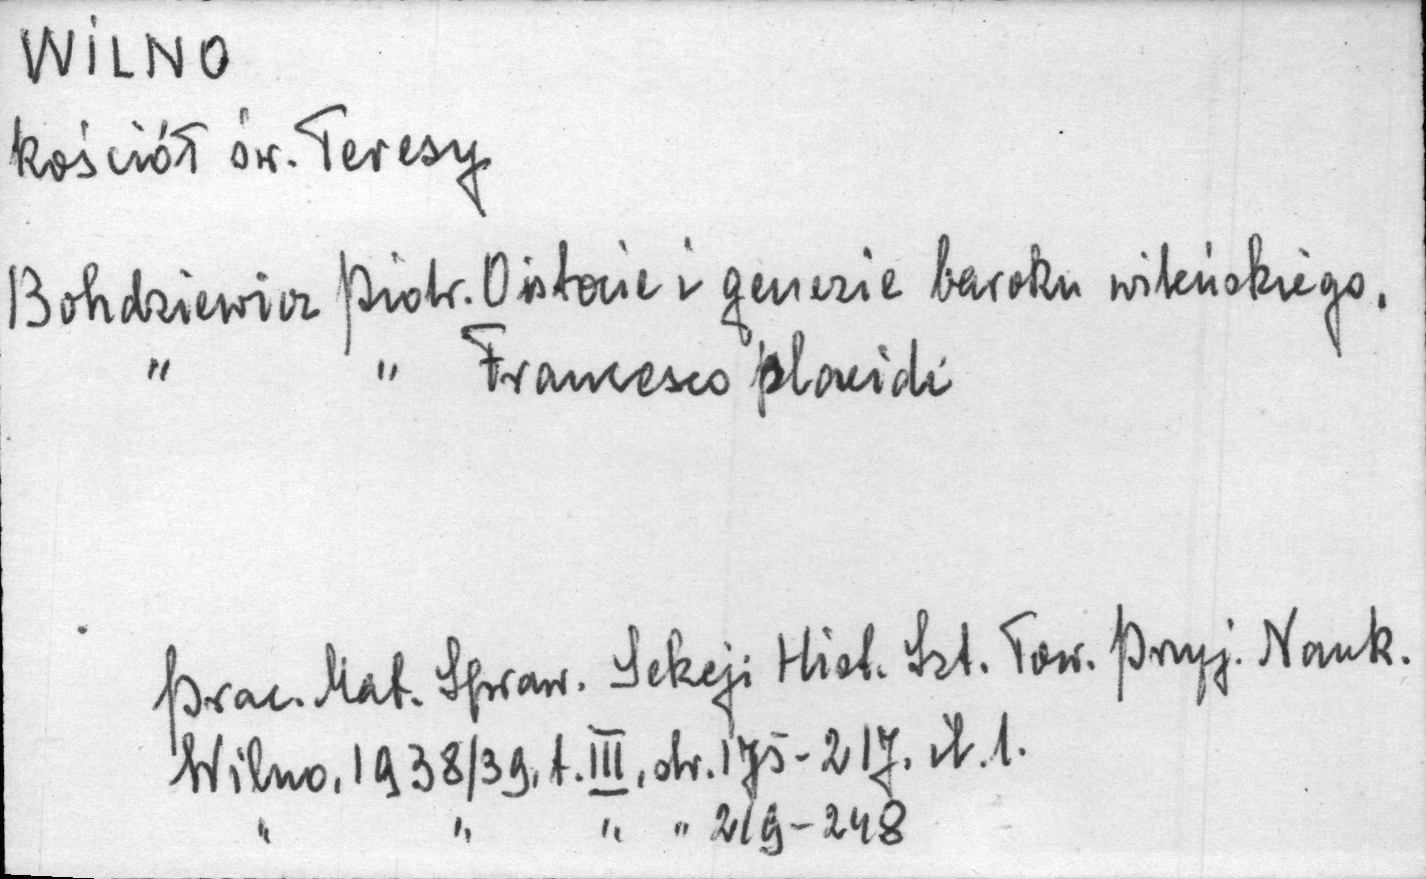 WILNO
kościół św. Teresy
Bohdziewicz Piotr. O istocie i genezie baroku wileńskiego.
" " Francesco Placidi
Prac. Mat. Spraw. Sekcji Hist. Szt. Tow. Przyj. Nauk.
Wilno, 1938/39, t. III, str. 175-217, il. 1.
" " " " 219-248